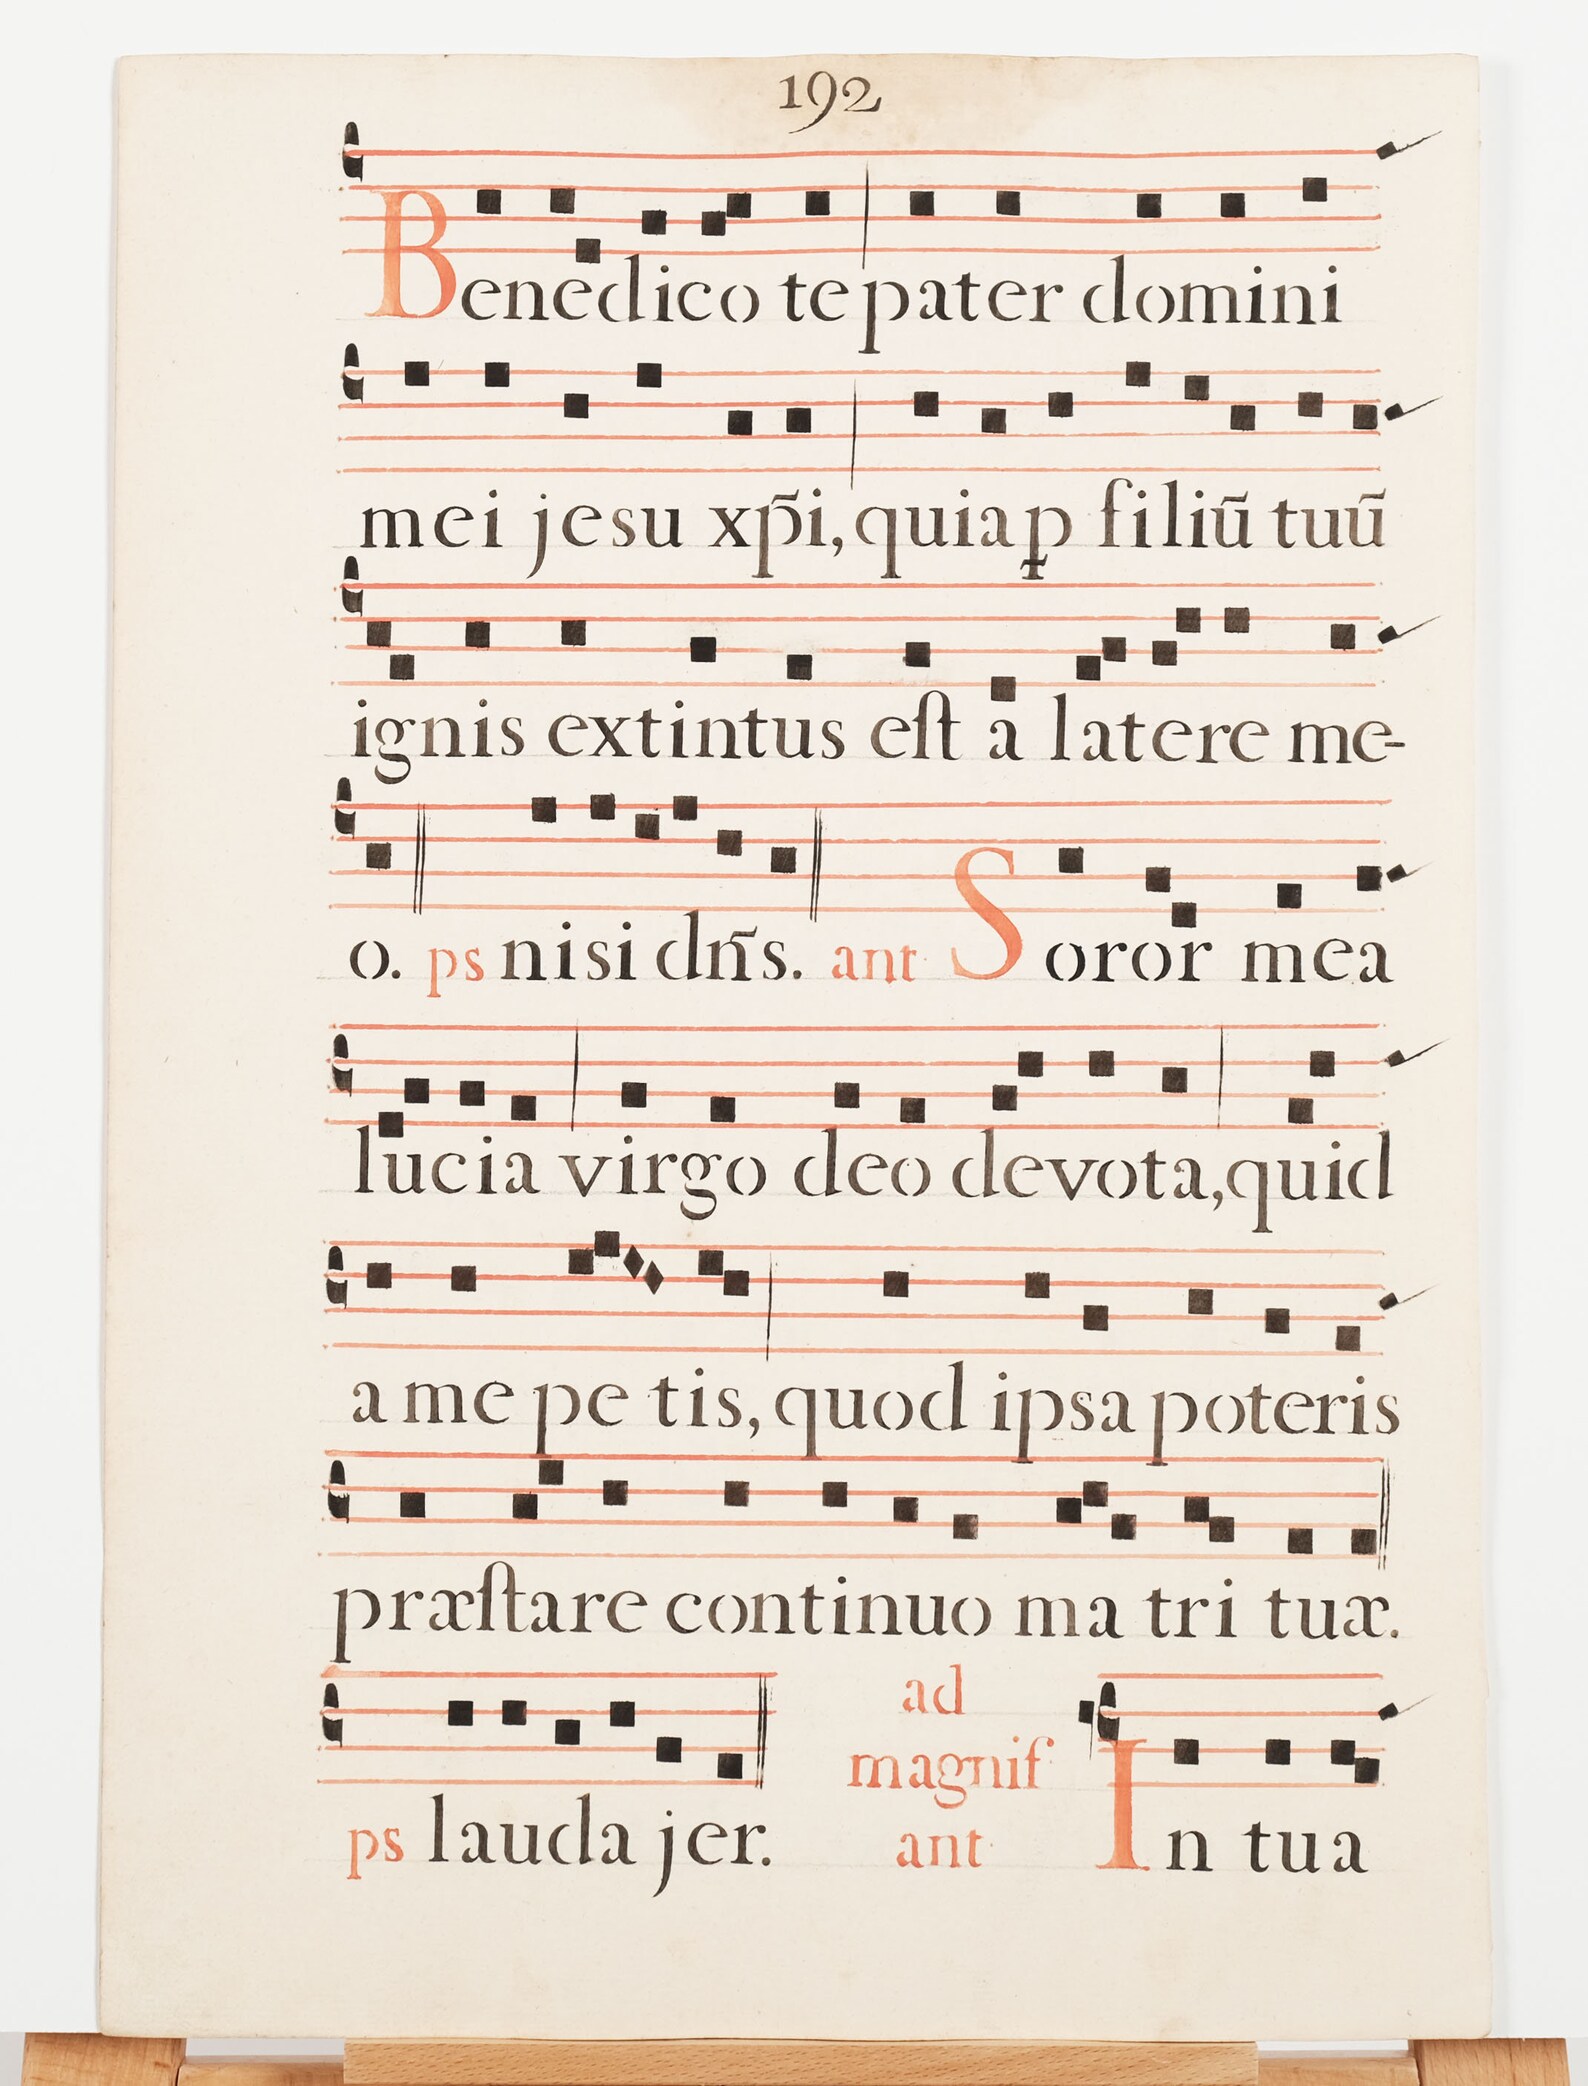 192
Benedico te pater domini
mei jesu xp̃i, quia ꝑ filiũ tuũ
ignis extintus eſt a latere me-
o. ps nisi dñs. ant Soror mea
lucia virgo deo devota, quid
a me pe tis, quod ipsa poteris
præſtare continuo ma tri tuæ.
ps lauda jer.
ad
magnif
ant
In tua